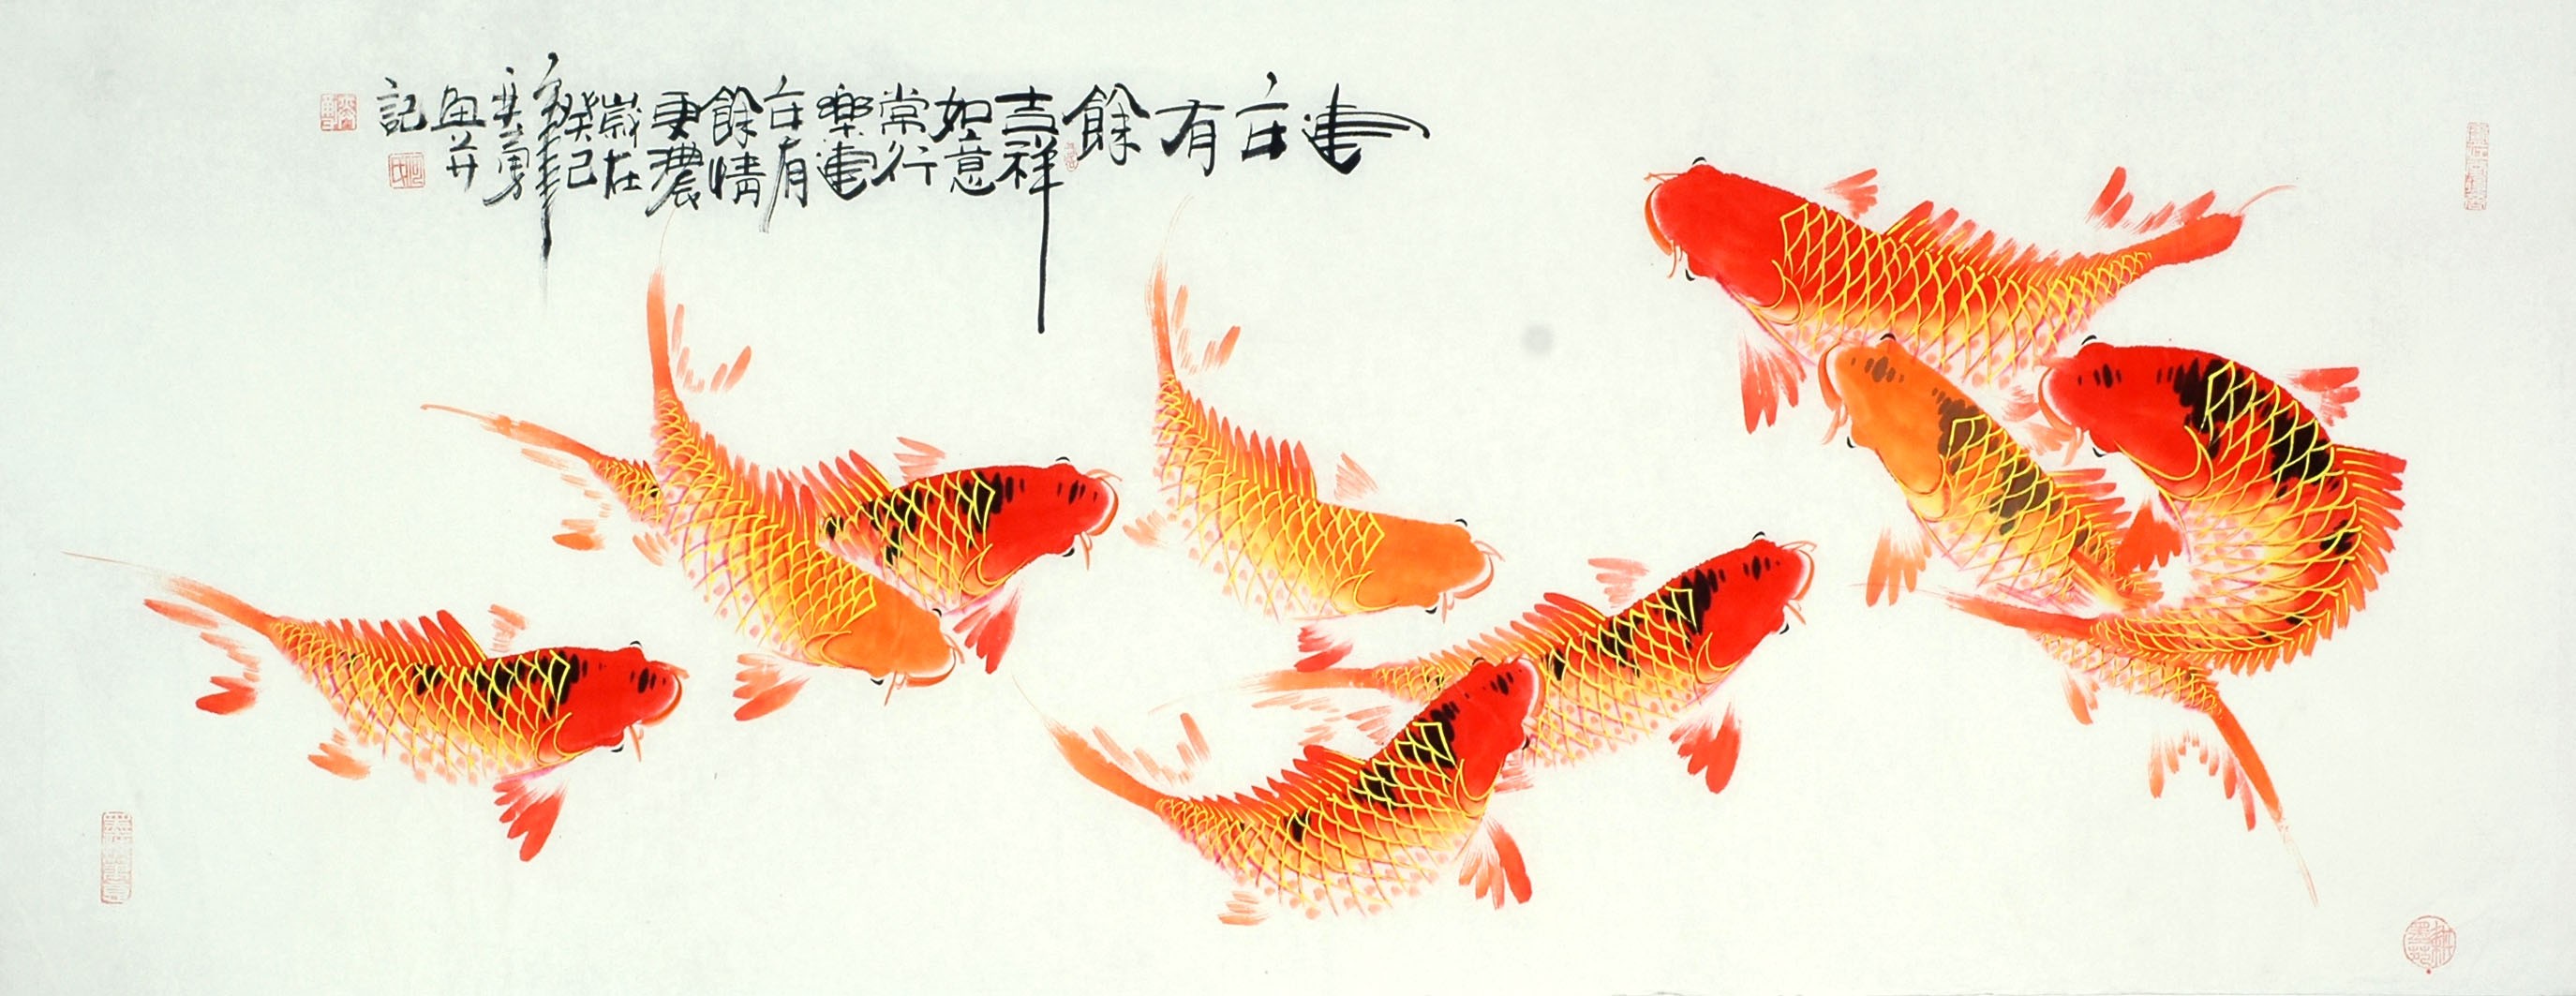 連年有餘
吉祥
如意
常行
樂連
年有
餘情
更濃
歲在
癸巳
年
勇
画并
記